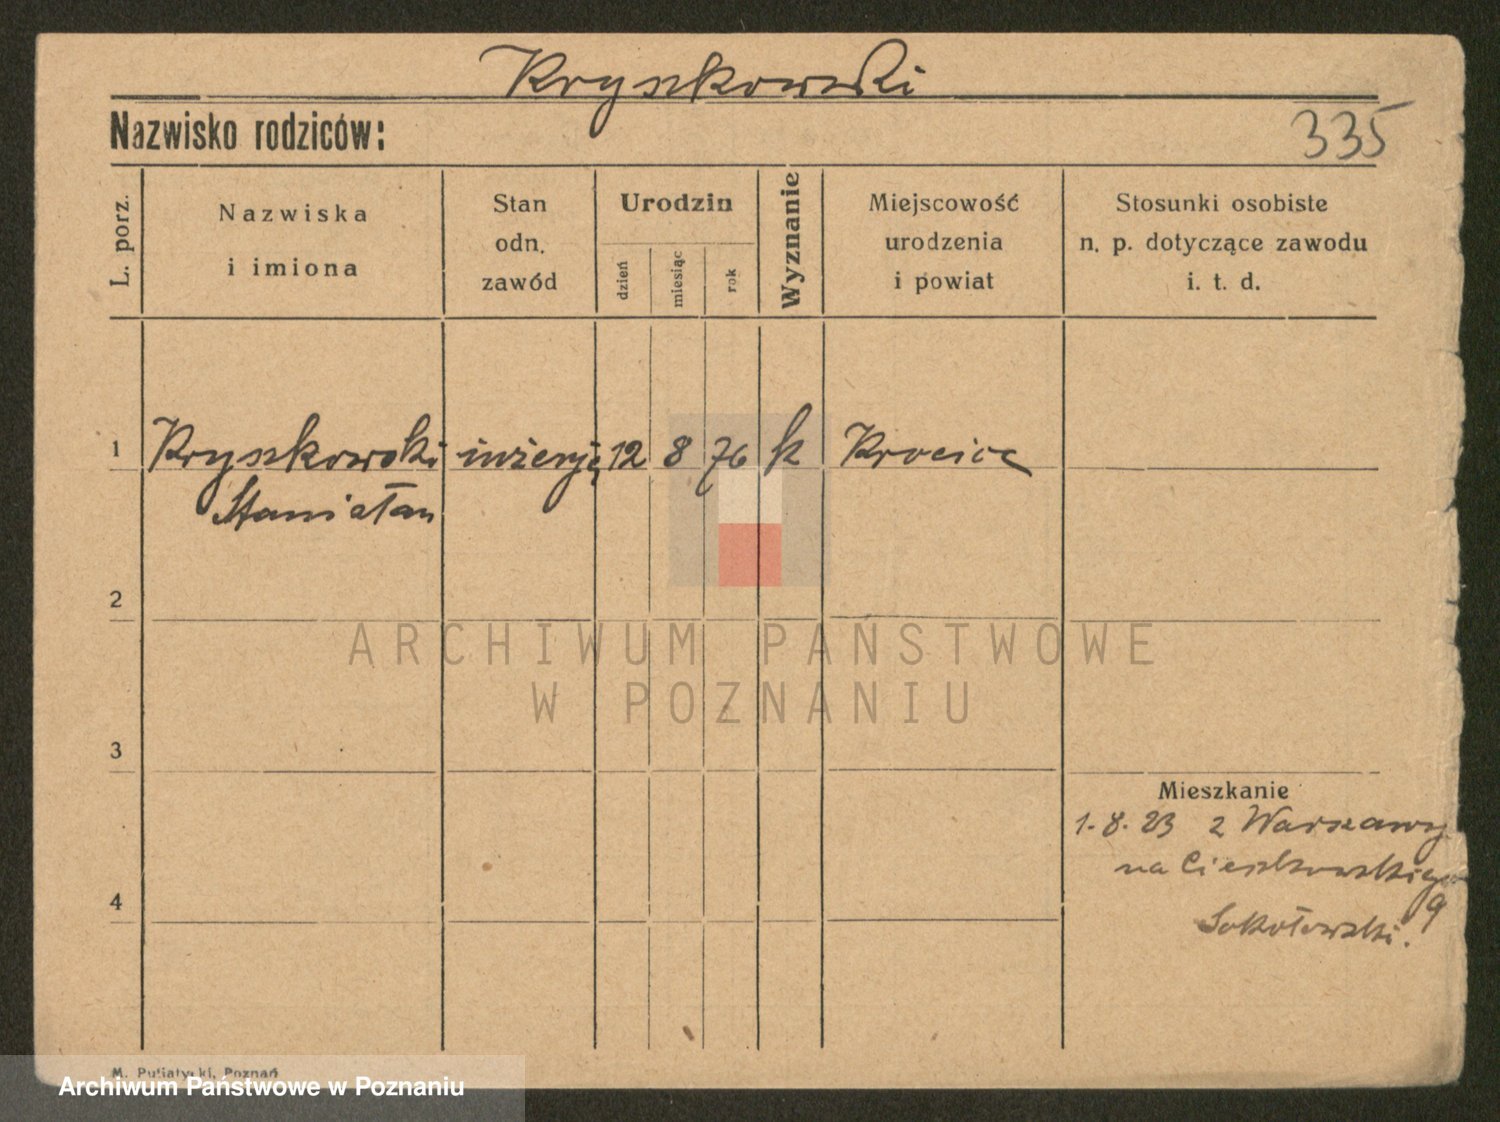 Kryszkowski
Nazwisko rodziców:
335
L. porz.
Nazwiska
i imiona
Stan
odn.
zawód
Urodzin
dzień
miesiąc
rok
Wyznanie
Miejscowość
urodzenia
i powiat
Stosunki osobiste
n. p. dotyczące zawodu
i. t. d.
1 Kryszkowski 12 8 76 k
Stanisław
2
ARCHIWUM PAŃSTWOWE
W POZNANIU
3
Mieszkanie
1.8.23 z Warszawy
na Cieszkowskiego
9
4
Sokołowski.
M. Putiatycki, Poznań
Archiwum Państwowe w Poznaniu